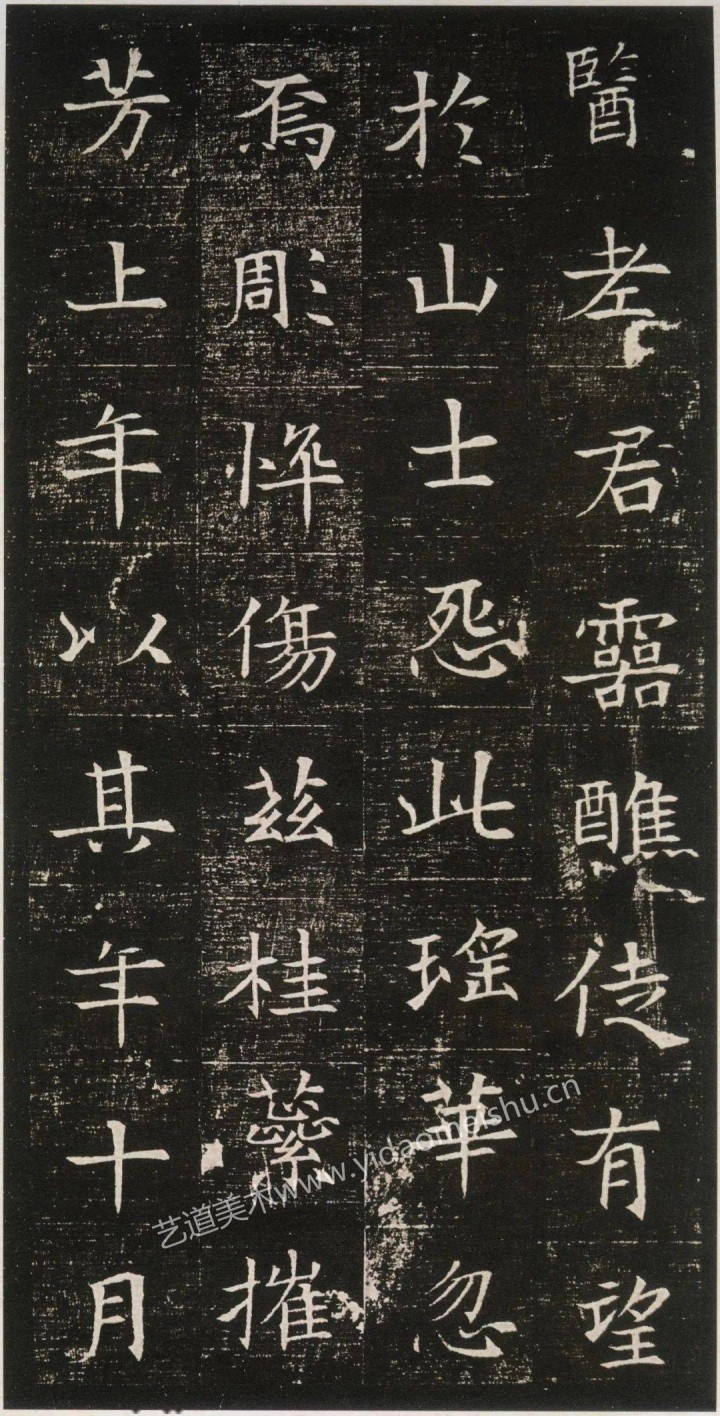 醫老君靈醮徒有望
於山士怨此瑤華忽
焉彫悴傷茲桂蘂摧
芳上年以其年十月
艺道美术www.yidaomeishu.cn